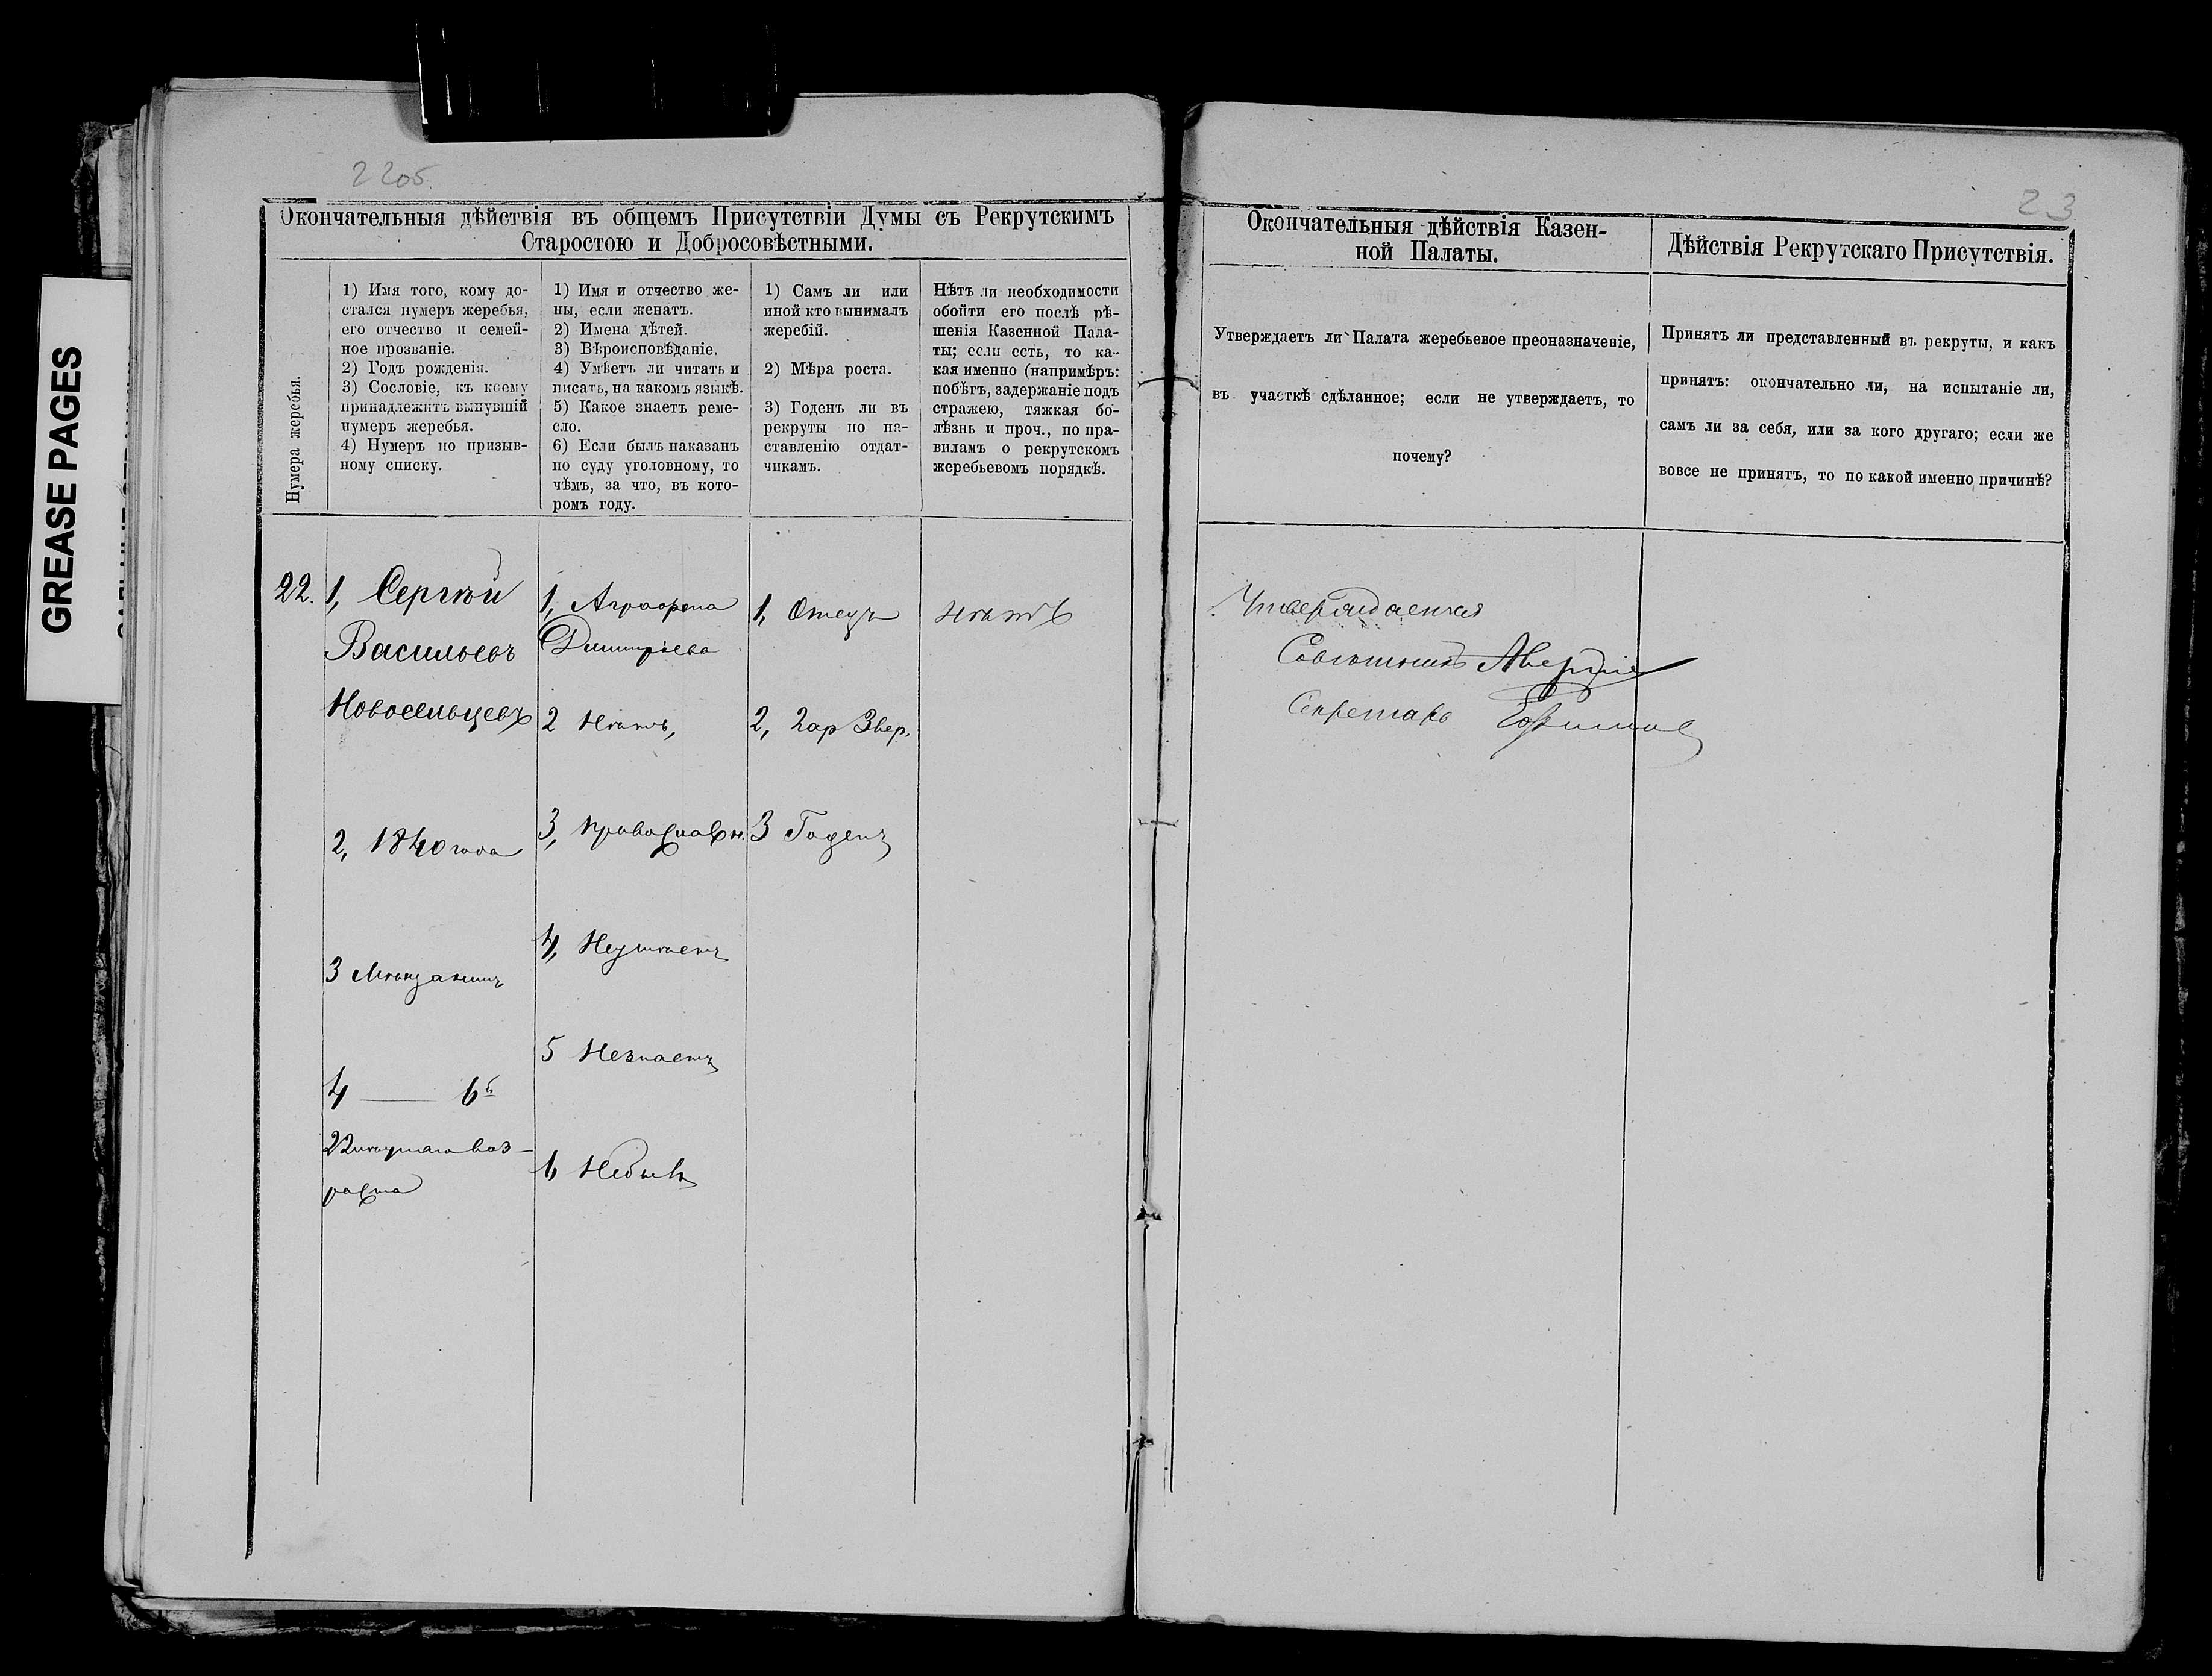 GREASE PAGES
22об.
23
Окончательныя дѣйствія въ общемъ Присутствіи Думы съ Рекрутскимъ
Старостою и Добросовѣстными.
Нумера жеребья.
1) Имя того, кому до-
стался нумеръ жеребья,
его отчество и семей-
ное прозваніе.
2) Годъ рожденія.
3) Сословіе, къ коему
принадлежитъ вынувшій
нумеръ жеребья.
4) Нумеръ по призыв-
ному списку.
1) Имя и отчество же-
ны, если женатъ.
2) Имена дѣтей.
3) Вѣроисповѣданіе.
4) Умѣетъ ли читать и
писать, на какомъ языкѣ.
5) Какое знаетъ реме-
сло.
6) Если былъ наказанъ
по суду уголовному, то
чѣмъ, за что, въ кото-
ромъ году.
1) Самъ ли или
иной кто вынималъ
жеребій.
2) Мѣра роста.
3) Годенъ ли въ
рекруты по на-
ставленію отдат-
чикамъ.
Нѣтъ ли необходимости
обойти его послѣ рѣ-
шенія Казенной Пала-
ты; если есть, то ка-
кая именно (напримѣръ:
побѣгъ, задержаніе подъ
стражею, тяжкая бо-
лѣзнь и проч., по пра-
виламъ о рекрутскомъ
жеребьевомъ порядкѣ.
22.
1, Сергѣй
Васильевъ
Новосельцевъ
2, 1840 года
3 Мѣщанинъ
4 —— 6й
22 лѣтняго воз-
раста
1, Аграфена
Димитріева
2 Нѣтъ,
3, Православн.
4, Неумѣетъ
5 Незнаетъ
6, Небылъ
1, Отецъ
2, 2 ар 3 вер.
3 Годенъ
нѣтъ
Окончательныя дѣйствія Казен-
ной Палаты.
Утверждаетъ ли Палата жеребьевое преоназначеніе,
въ участкѣ сдѣланное; если не утверждаетъ, то
почему?
Утверждается
Совѣтникъ
Секретарь
Дѣйствія Рекрутскаго Присутствія.
Принятъ ли представленный въ рекруты, и какъ
принятъ: окончательно ли, на испытаніе ли,
самъ ли за себя, или за кого другаго; если же
вовсе не принятъ, то по какой именно причинѣ?